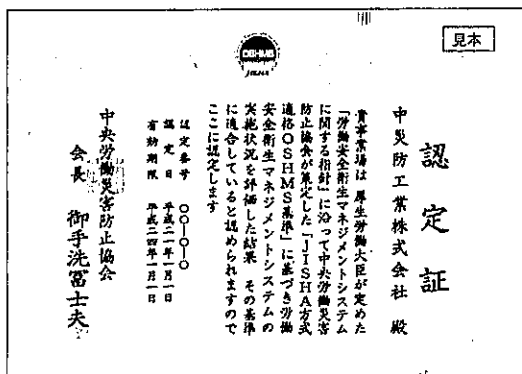 見本
OSHMS
JISHA
認定証
中災防工業株式会社 殿
貴事業場は 厚生労働大臣が定めた
「労働安全衛生マネジメントシステム
に関する指針」に沿って中央労働災害
防止協会が策定した「JISHA方式
適格OSHMS基準」に基づき労働
安全衛生マネジメントシステムの
実施状況を評価した結果 その基準
に適合していると認められますので
ここに認定します
認定番号 〇〇―〇―〇
認定日 平成二一年一月一日
有効期限 平成二四年一月一日
中央労働災害防止協会
会長 御手洗冨士夫